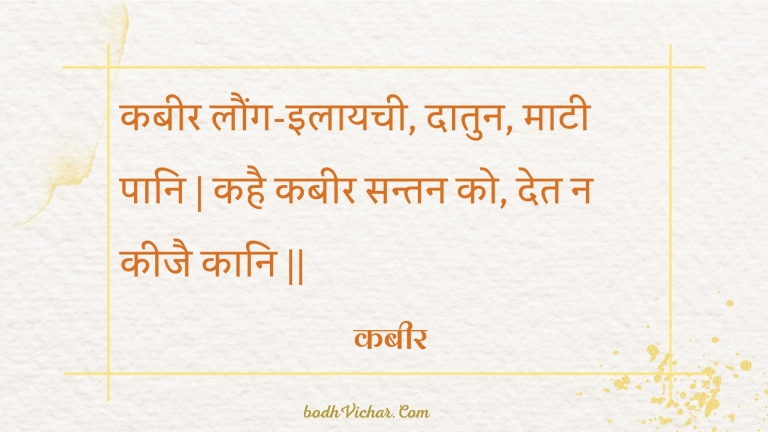 कबीर लौंग-इलायची, दातुन, माटी
पानि | कहै कबीर सन्तन को, देत न
कीजै कानि ||
कबीर
bodhVichar.Com